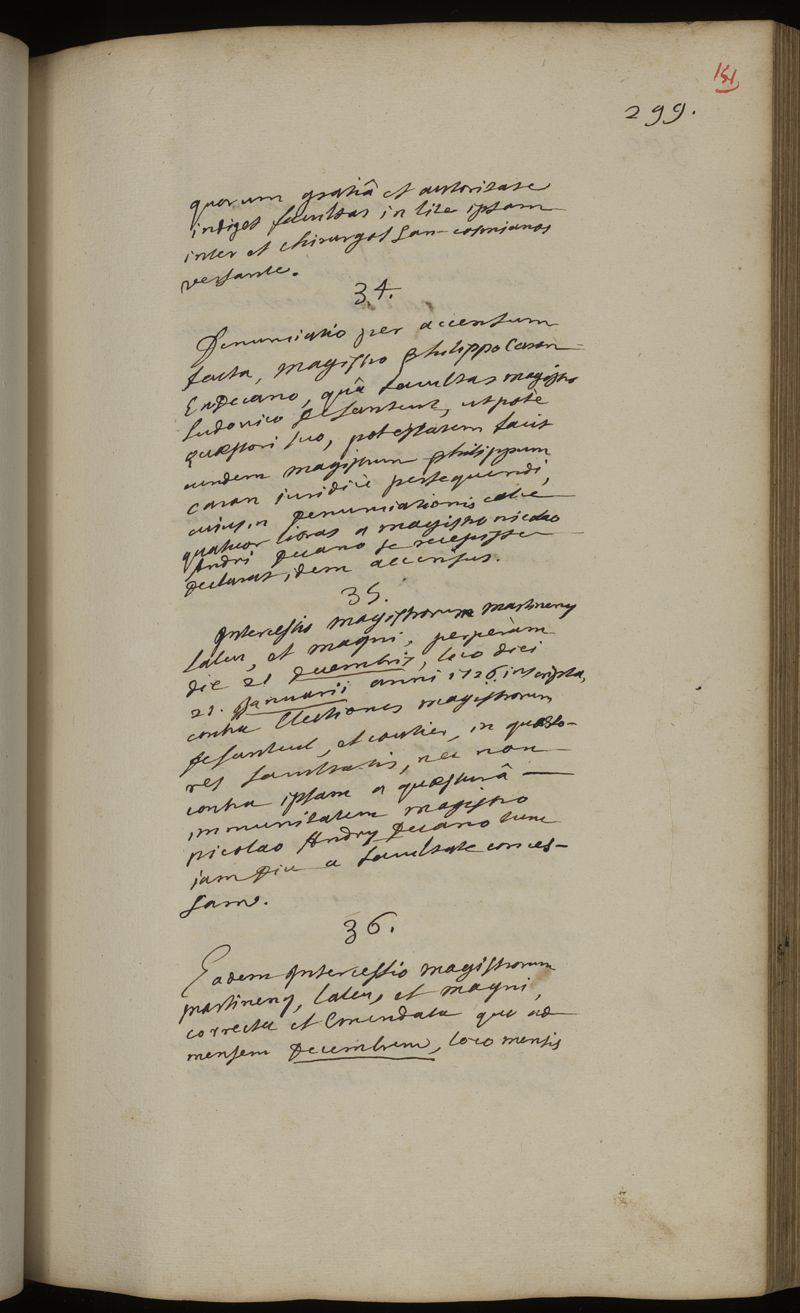 151
299.
quorum gratiâ et autoritate
indiget facultas in lite ipsam
inter et chirurgos San-cosmianos
versante.
34.
Denunciatio per accensum
facta, magistro philippo Caron
Exdecano, quâ facultas magistro
Ludovico De Santeul, utpote
quæstori suo, potestatem facit
eundem magistrum philippum
caron iuridicè persequendi,
cuius, denunciationis
quatuor libras a magistro nicolao
Andri Decano se recepisse
declarat idem accensus.
35.
Intercessio magistrorum martineng
Laleu, et magni, perperàm
die 21 Decembris, loco diei
21. Januarii anni 1726 inscripta,
contra Electiones magistrorum
De Santeul, et coutier, in quæsto-
res facultatis, nec non
contra ipsam a quæsturâ
immunitatem magistro
Nicolao Andry Decano tunc
iam diu a facultate conces-
sam.
36.
Eadem Intercessio magistrorum
martineng, Laleu, et magni,
correcta et Emendata quo ad
mensem Decembrem, loco mensis